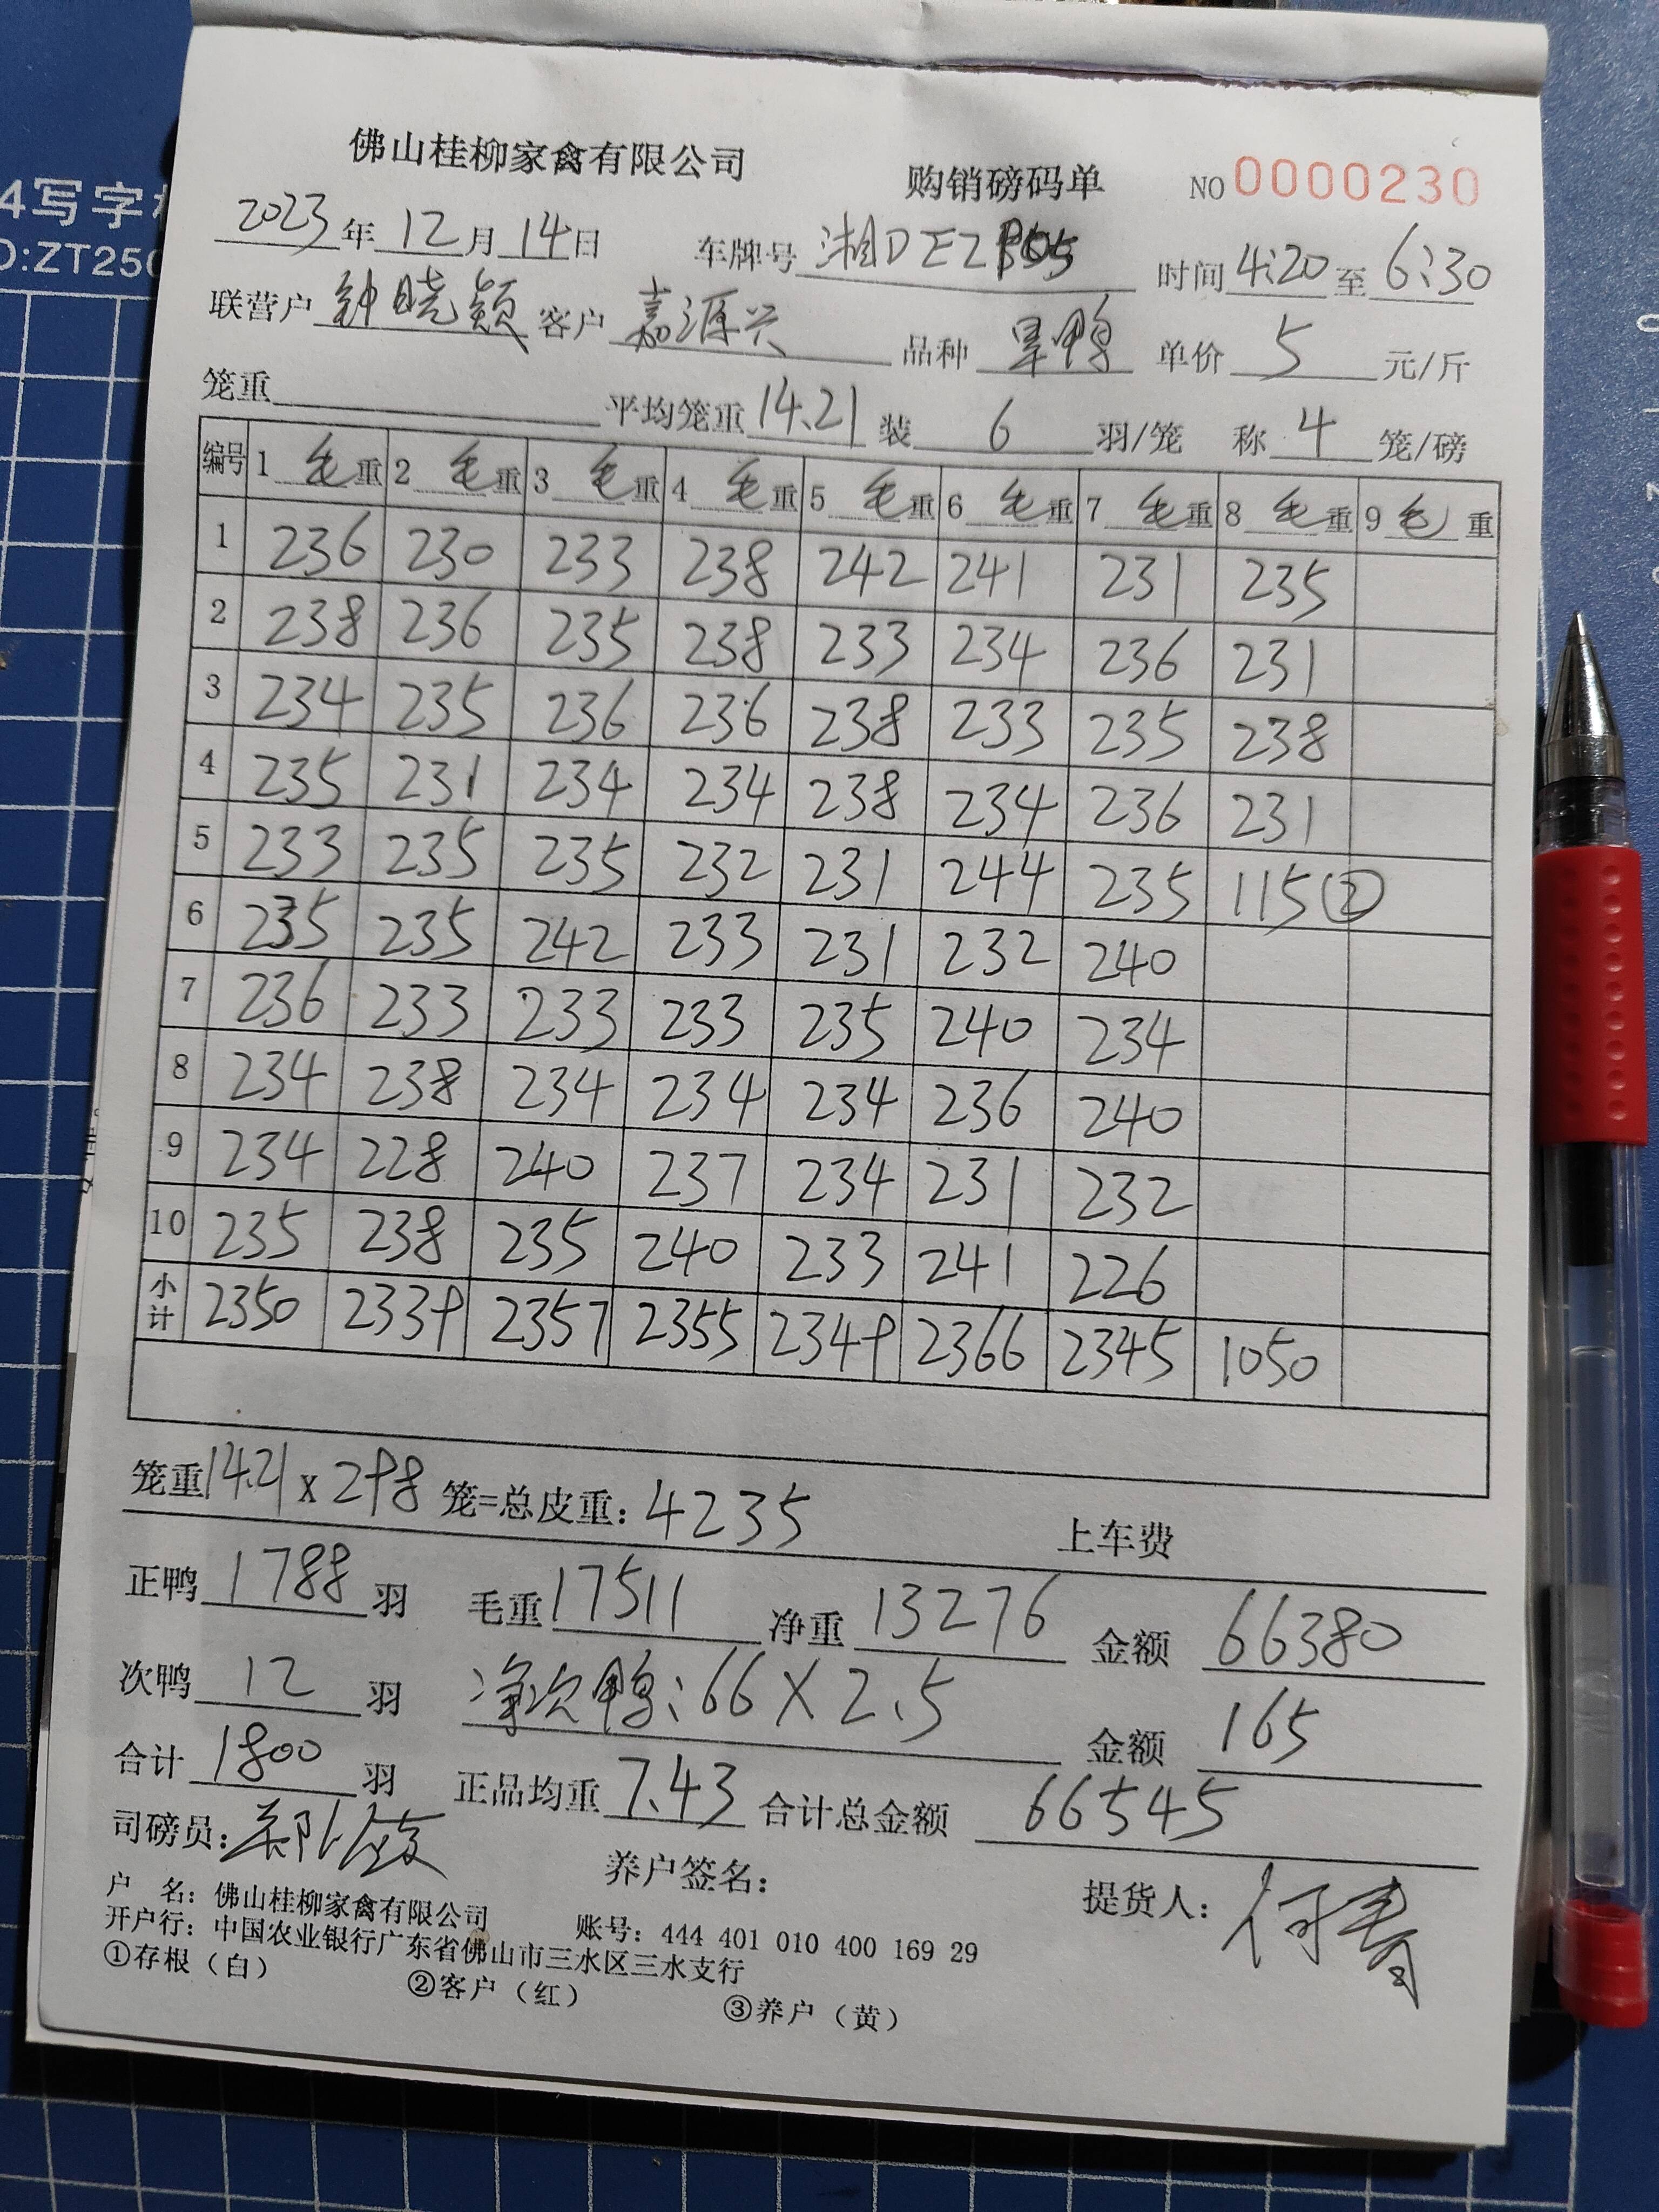 佛山桂柳家禽有限公司 购销磅码单 NO 0000230
2023年12月14日 车牌号 湘DEZ 时间4:20至6:30
联营户 钟晓颖 客户 嘉源兴 品种 旱鸭 单价 5 元/斤
笼重 平均笼重14.21 装 6 羽/笼 称 4 笼/磅
编号 1 毛重 2 毛重 3 毛重 4 毛重 5 毛重 6 毛重 7 毛重 8 毛重 9 毛 重
1 236 230 233 238 242 241 231 235
2 238 236 235 238 233 234 236 231
3 234 235 236 236 238 233 235 238
4 235 231 234 234 238 234 236 231
5 233 235 235 232 231 244 235 115②
6 235 235 242 233 231 232 240
7 236 233 233 233 235 240 234
8 234 238 234 234 234 236 240
9 234 228 240 237 234 231 232
10 235 238 235 240 233 241 226
小计 2350 2339 2357 2355 2349 2366 2345 1050
笼重14.21 x 298 笼=总皮重：4235 上车费
正鸭 1788 羽 毛重 17511 净重 13276 金额 66380
次鸭 12 羽 净次鸭：66 X 2.5 金额 165
合计 1800 羽 正品均重 7.43 合计总金额 66545
司磅员： 养户签名： 提货人：
户 名：佛山桂柳家禽有限公司 账号：444 401 010 400 169 29
开户行：中国农业银行广东省佛山市三水区三水支行
①存根（白） ②客户（红） ③养户（黄）
4写字
D:ZT250